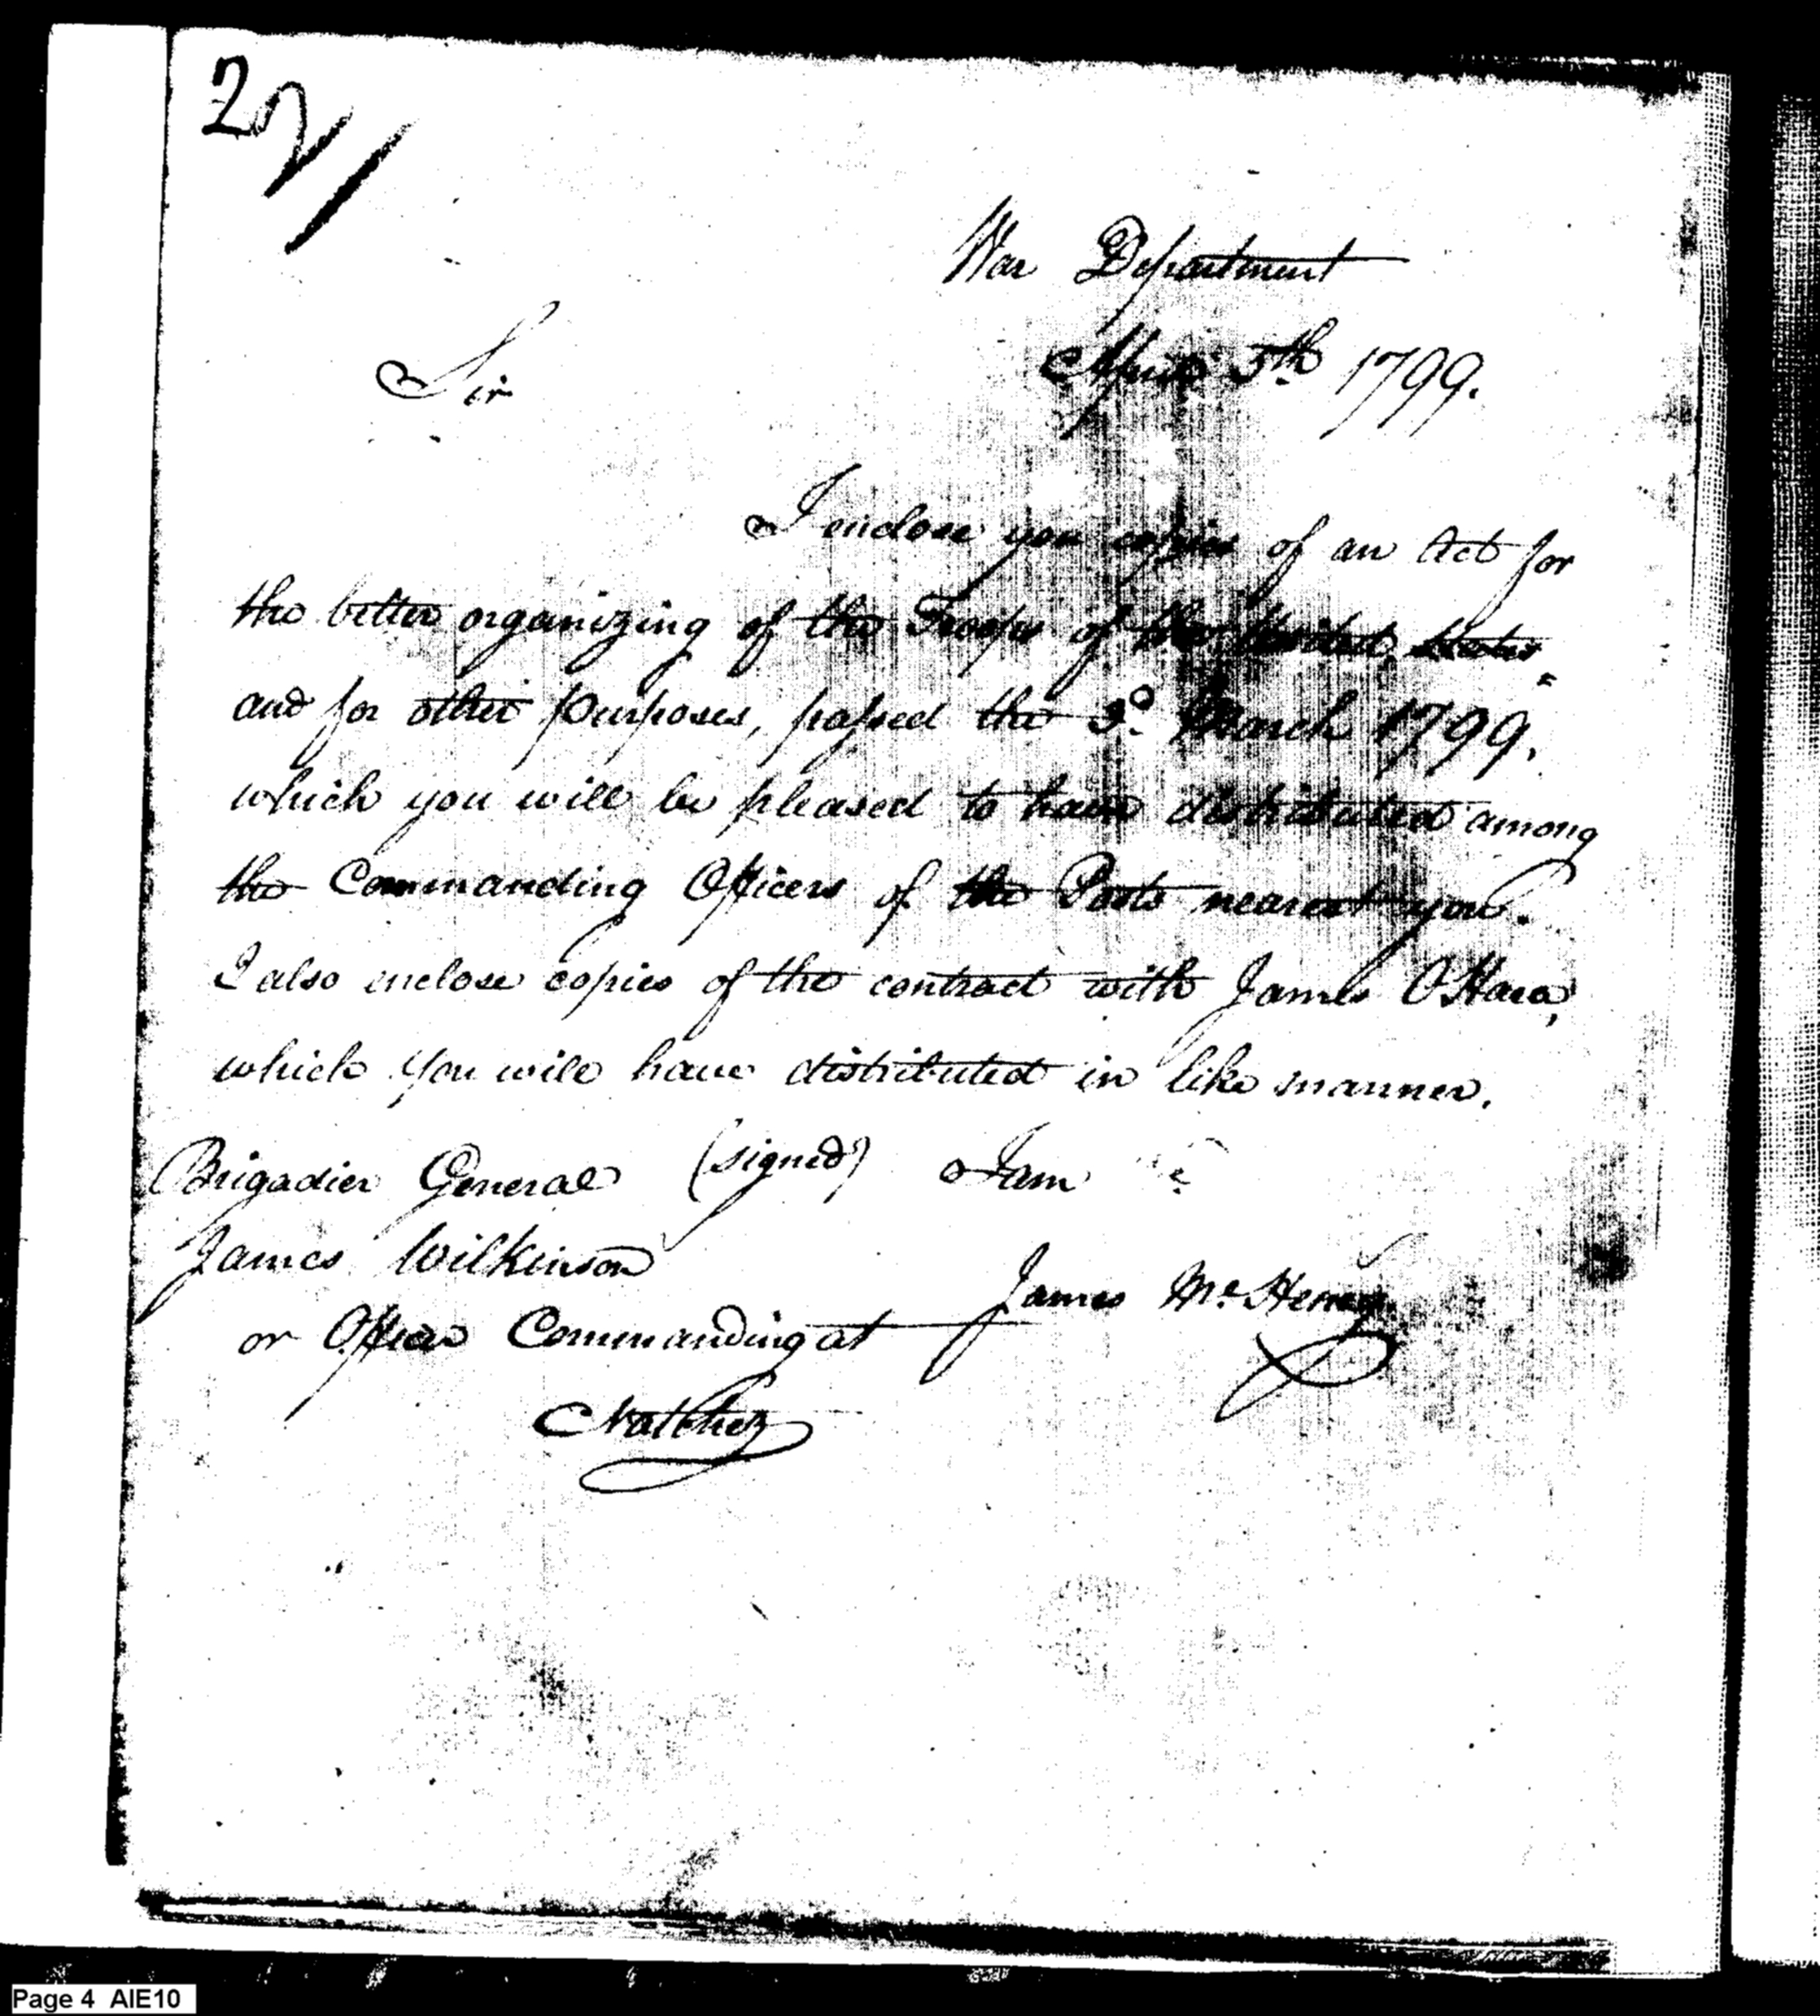 22
War Department
April 5th 1799.
Sir
I enclose you copies of an Act for
the better organizing of the Troops of the United States
and for other purposes, passed the 3d. March 1799.
which you will be pleased to have distributed among
the Commanding Officers of the Posts nearest you.
I also enclose copies of the contract with James OHara,
which you will have distributed in like manner.
Brigadier General (signed) I am
James Wilkinson
James McHenry
or Officer Commanding at
Natchez
Page 4 AIE10